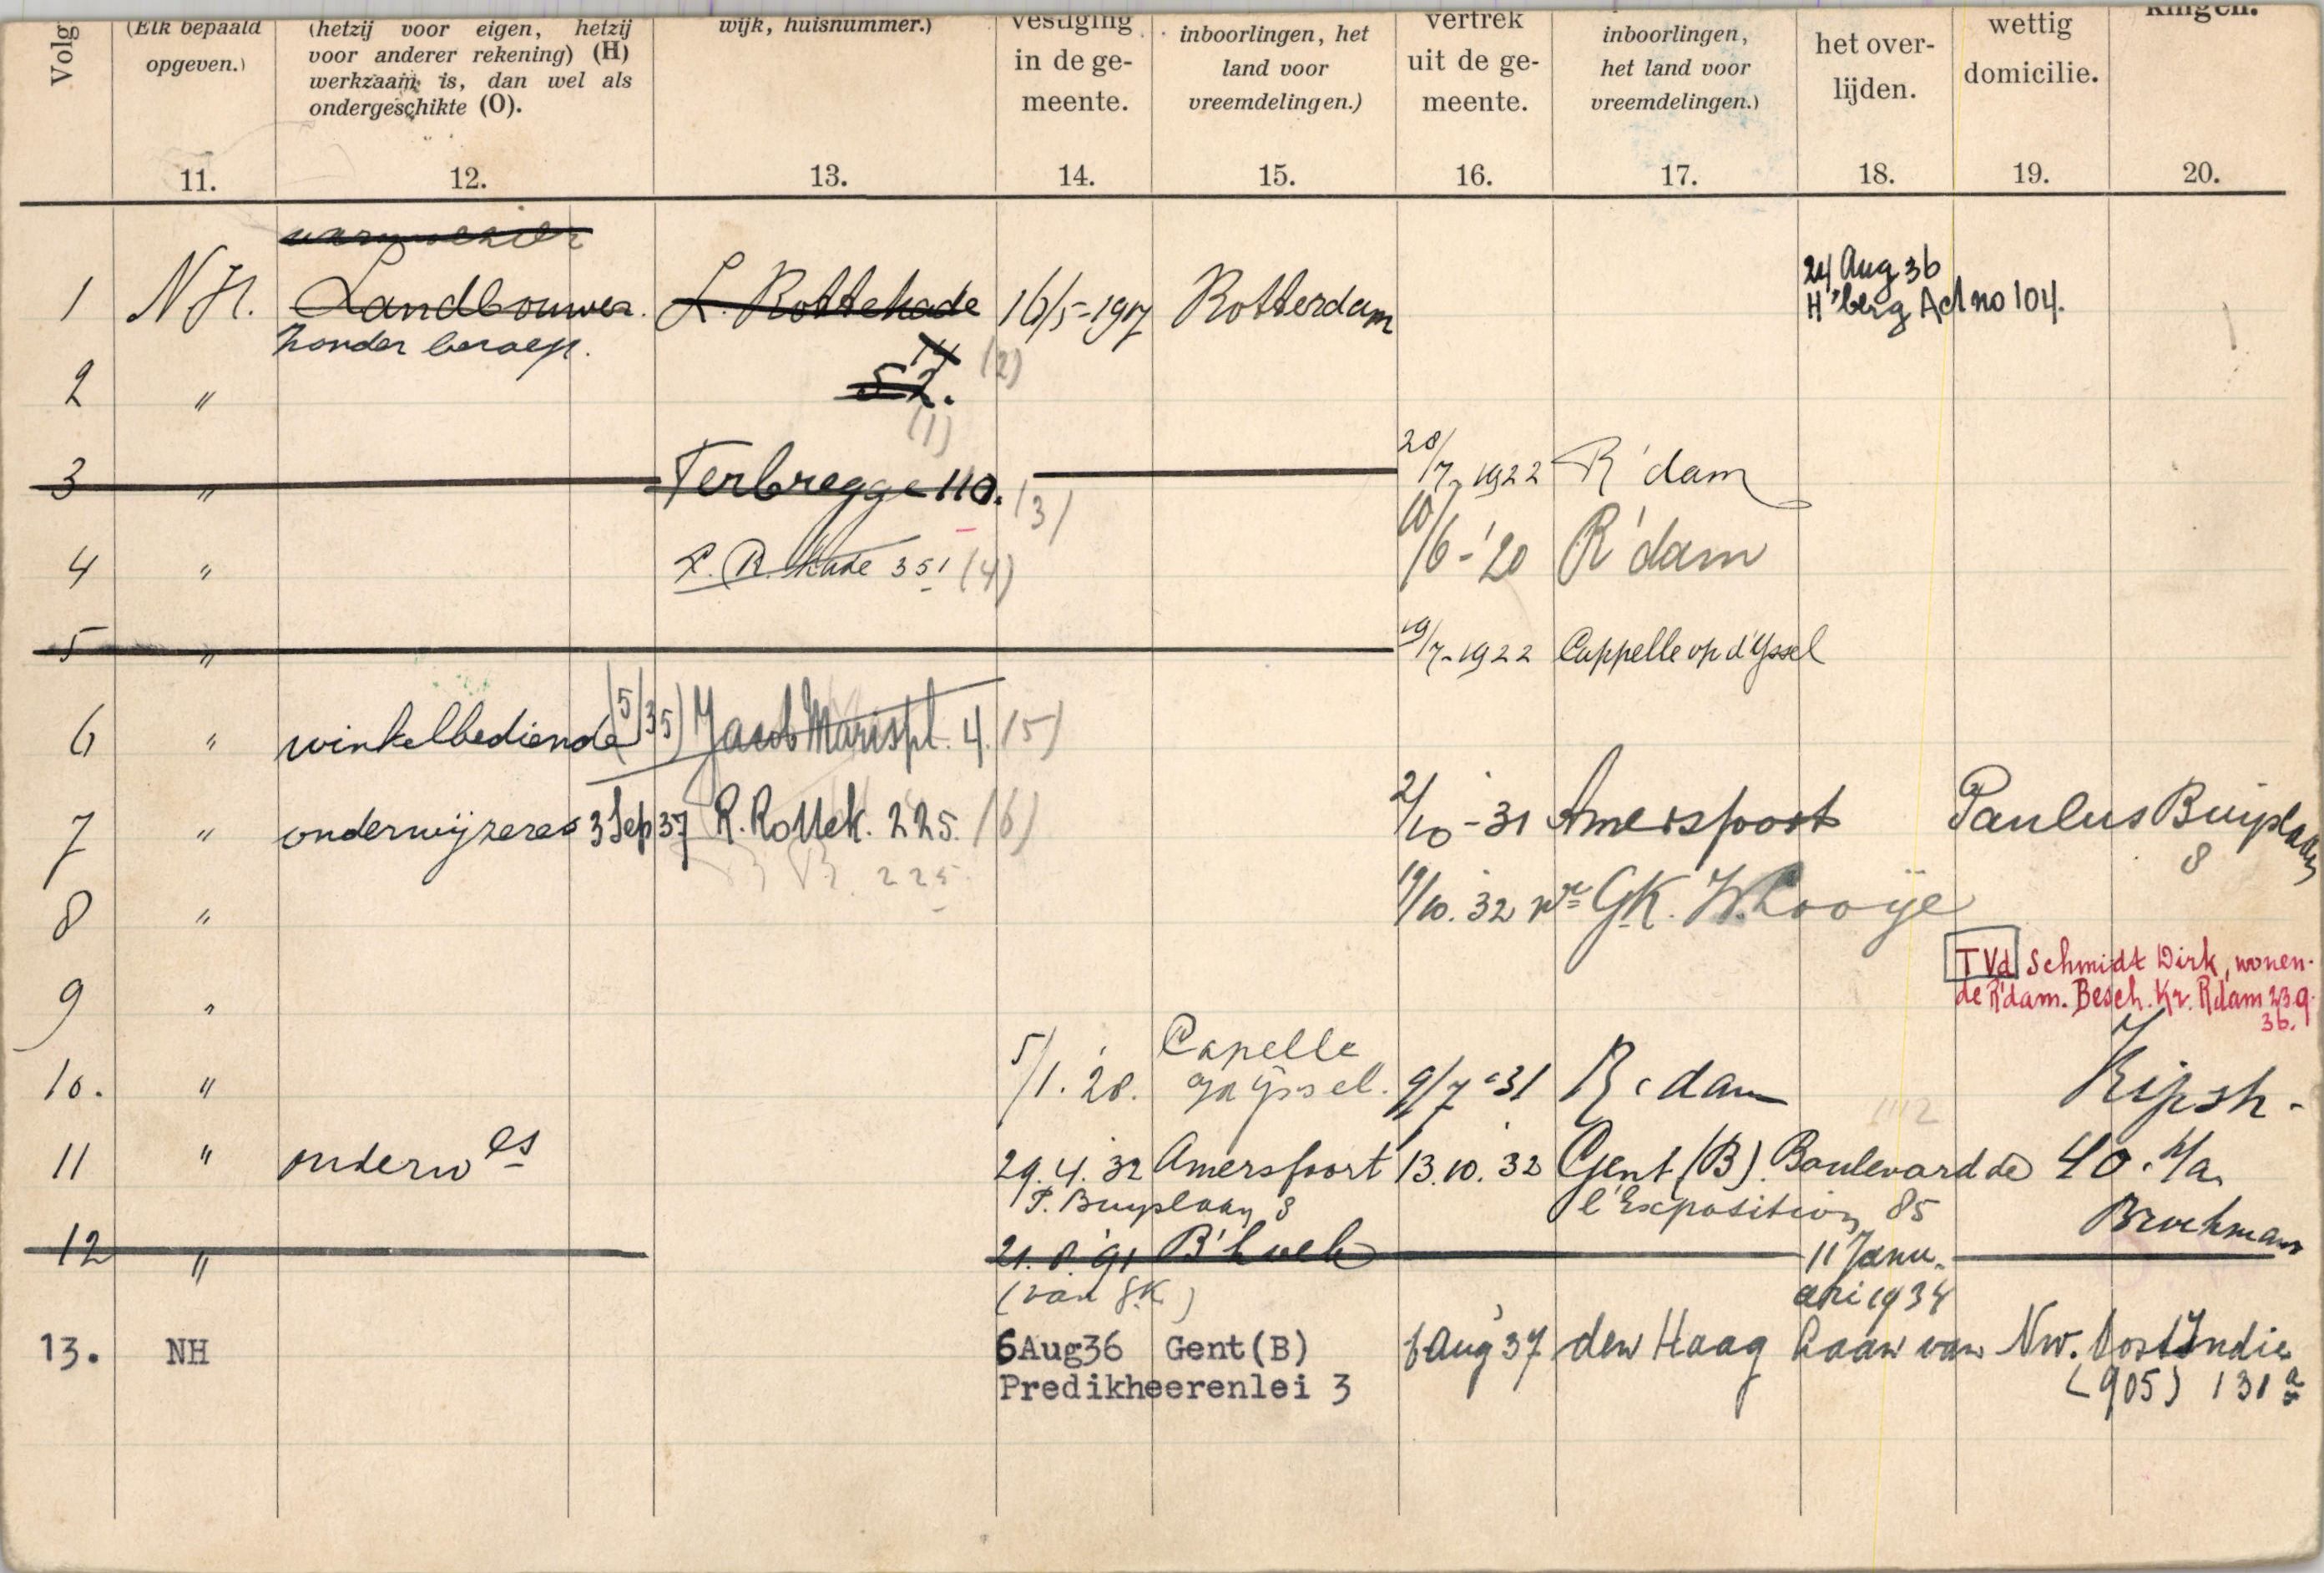 Volg
(Elk bepaald
opgeven.)
11.
(hetzij voor eigen, hetzij
voor anderer rekening) (H)
werkzaam is, dan wel als
ondergeschikte (O).
12.
wijk, huisnummer.)
13.
vestiging
in de ge-
meente.
14.
inboorlingen, het
land voor
vreemdelingen.)
15.
vertrek
uit de ge-
meente.
16.
inboorlingen,
het land voor
vreemdelingen.)
17.
het over-
lijden.
18.
wettig
domicilie.
19.
kingen.
20.
1 N H. Landbouwer. L. Rottekade 16/5-1917 Rotterdam 24 Aug 36
H'berg Act no 104.
zonder beroep.
14 (2)
2 " 52.
(1)
3 " Terbregge 110. (3) 28/7-1922 R'dam
4 " L. R. kade 351 (4) 10/6-'20 R'dam
5 " 19/7-1922 Cappelle op d'Yssel
6 " winkelbediende (5/35) Jacob Marispl. 4. (5)
7 " onderwijzeres 3 Sep 37 R. Rottek. 225. (6) 2/10-31 Amersfoort Paulus Buijslaan
8
225
8 " 19/10.32 GK. W. Looije
TVd Schmidt Dirk, wonen-
de R'dam. Besch. Kr. Rdam 23.9.
36.
9 "
10. " 5/1.'28. Capelle
a/d Yssel. 9/7-'31 R'dam Kipsh-
11 " onderw es 29.4.32 Amersfoort 13.10.32 Gent (B). Boulevard de 40. h/a.
P. Buyslaan 8 l'Exposition 85 Brockmann
12 " 21.8.'91 B'hoek 11 Janu-
(van GK) ari 1934
13. NH 6Aug36 Gent(B) 6 Aug 37 den Haag Laan van Nw. Oost Indie
Predikheerenlei 3 (905) 131a